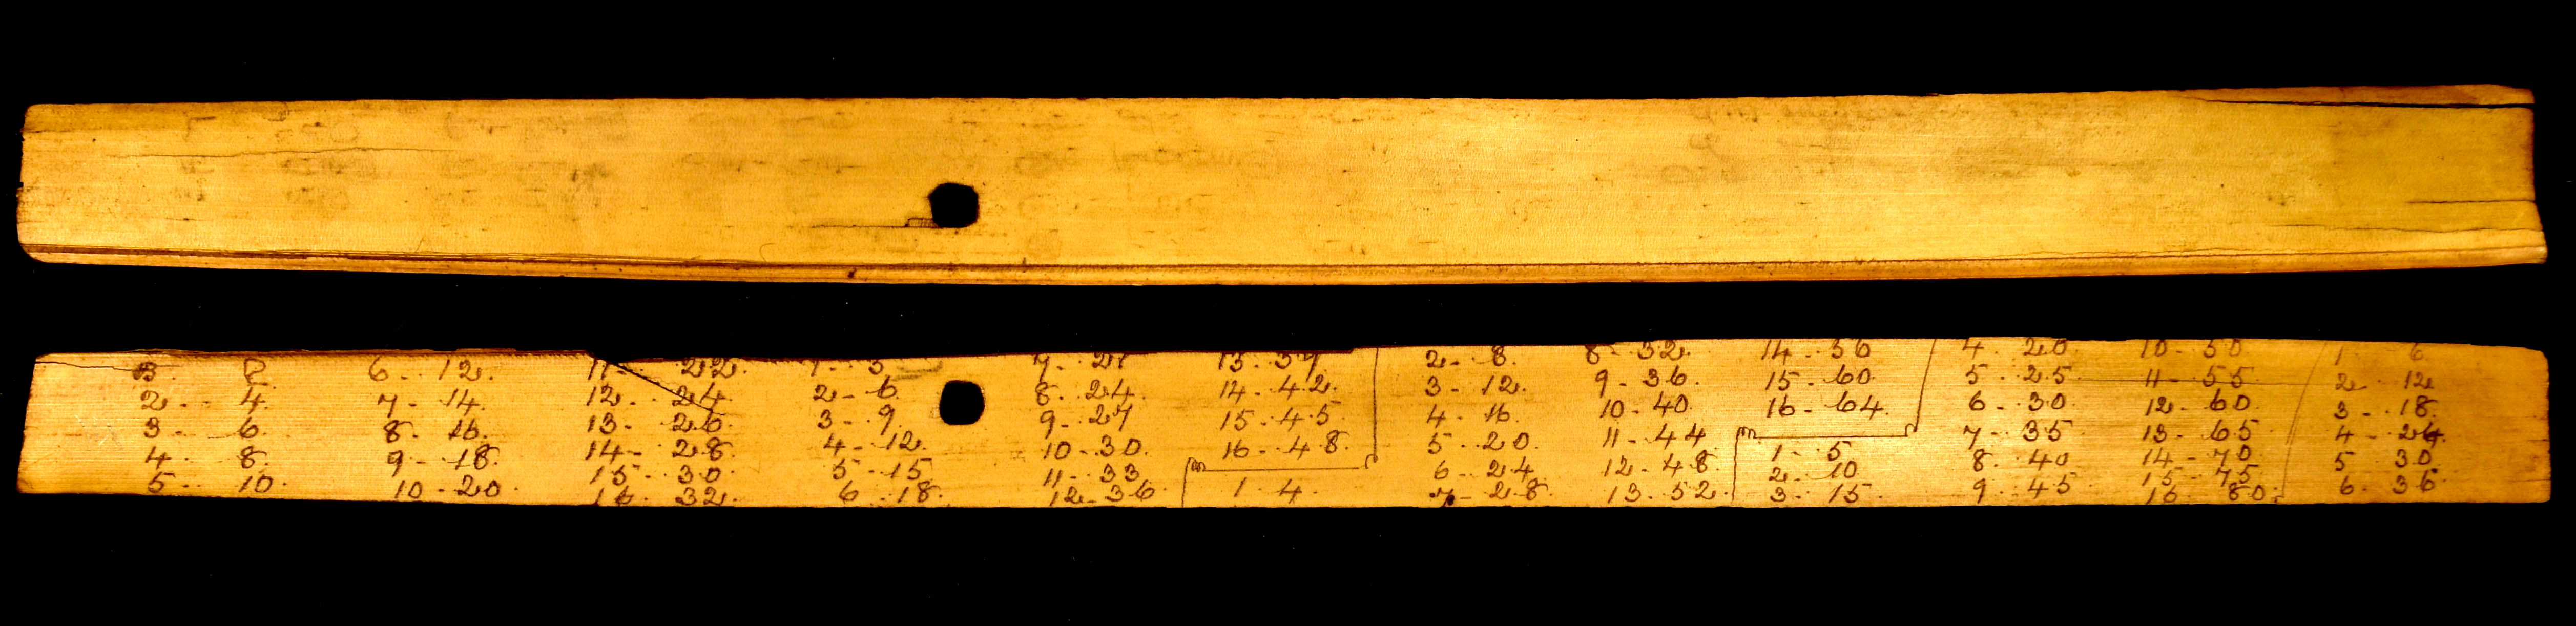 2 - 4.
3 - 6.
4 - 8.
5 - 10.
6 - 12.
7 - 14.
8 - 16.
9 - 18.
10 - 20.
11 - 22.
12 - 24.
13 - 26.
14 - 28.
15 - 30.
16 - 32.
1 - 3
2 - 6.
3 - 9.
4 - 12.
5 - 15.
6 - 18.
7 - 21
8 - 24.
9 - 27
10 - 30.
11 - 33
12 - 36.
13 - 39
14 - 42.
15 - 45
16 - 48.
1 - 4.
2 - 8.
3 - 12.
4 - 16.
5 - 20.
6 - 24
7 - 28
8 - 32.
9 - 36.
10 - 40.
11 - 44
12 - 48.
13 - 52.
14 - 56
15 - 60
16 - 64.
1 - 5
2 - 10
3 - 15
4 - 20
5 - 25
6 - 30
7 - 35
8 - 40
9 - 45
10 - 50
11 - 55
12 - 60
13 - 65
14 - 70
15 - 75
16 - 80.
1 - 6
2 - 12
3 - 18.
4 - 24.
5 - 30
6 - 36.